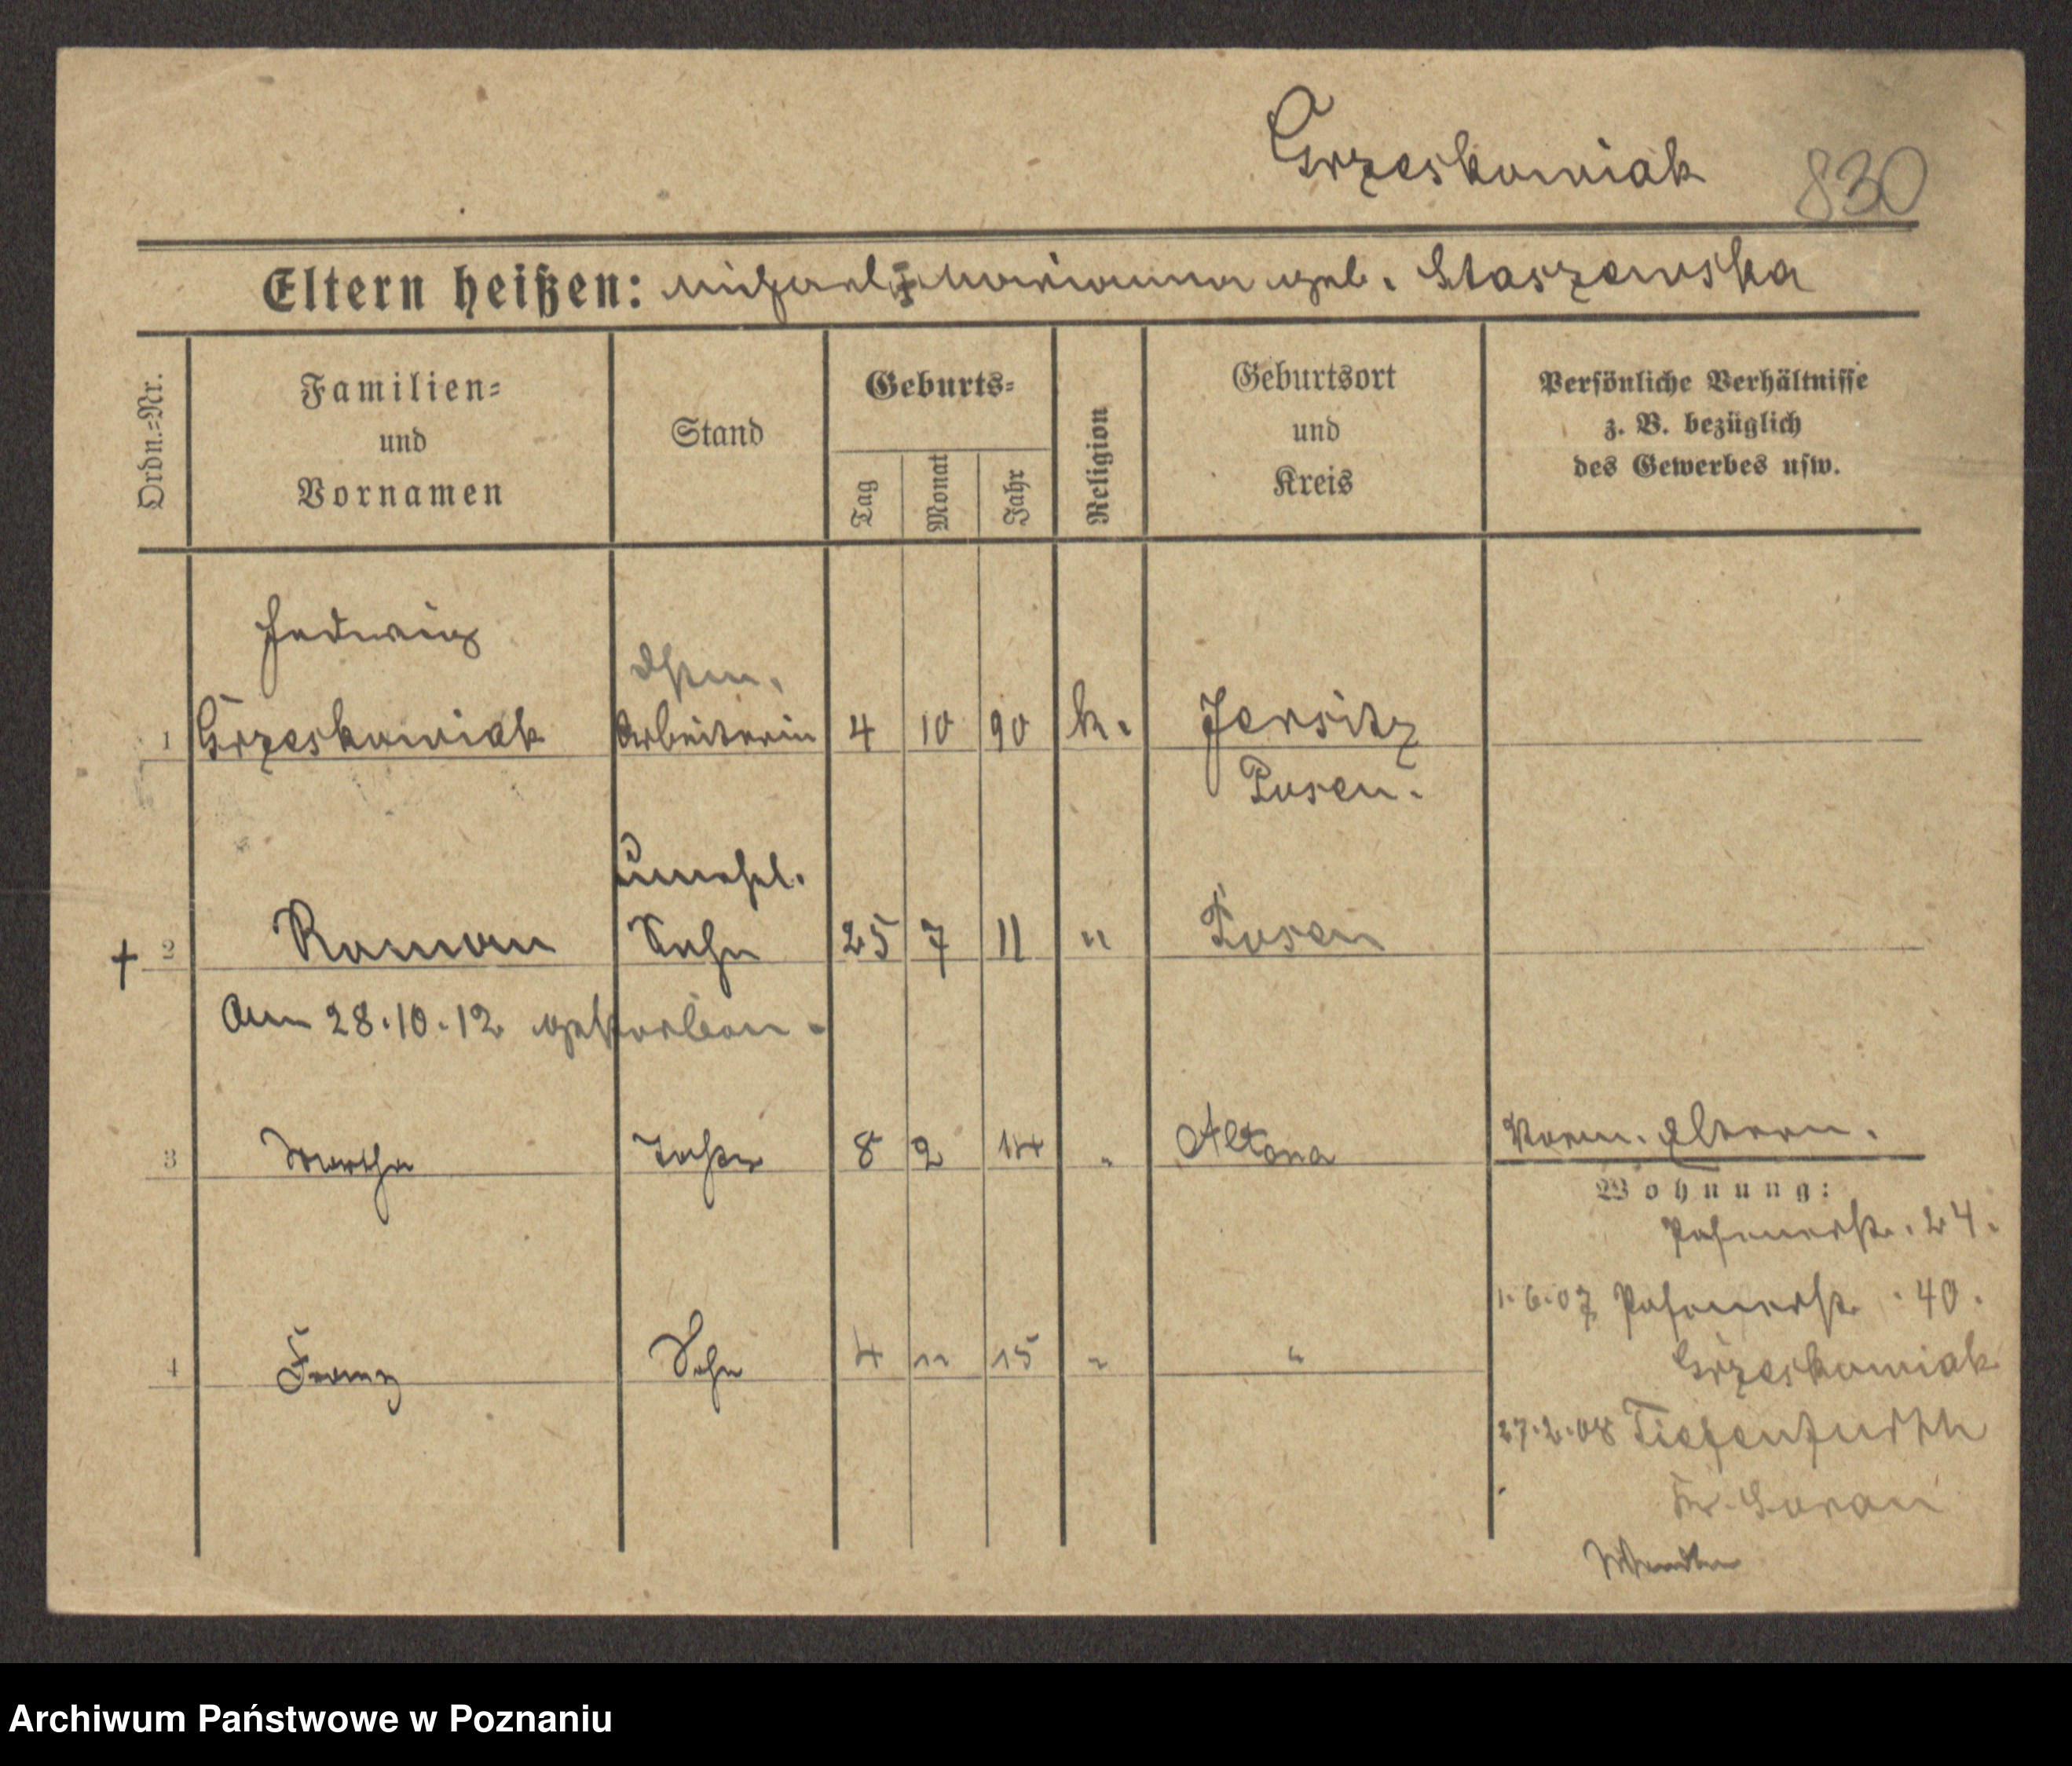 Grzeskowiak 830
Eltern heißen: Michael & Marianna geb. Staszewska
Ordn.=Nr.
Familien=
und
Vornamen
Stand
Geburts=
Tag
Monat
Jahr
Religion
Geburtsort
und
Kreis
Persönliche Verhältnisse
z. B. bezüglich
des Gewerbes usw.
Hedwig
1 Grzeskowiak Arbeiterin 4 10 90 k. Jersitz
Posen.
unehel.
+ 2 Roman Sohn 25 7 11 " Posen
Am 28.10.12 gestorben.
3 Martha Tochter 8 2 14 " Altona
Eltern.
Wohnung:
Posenerstr. 24.
4 Franz Sohn 4 11 15 " "
1.6.07 Posenerstr. 40.
Grzeskowiak
27.2.08 Tiefenfurth
Kr. Soran
Archiwum Państwowe w Poznaniu